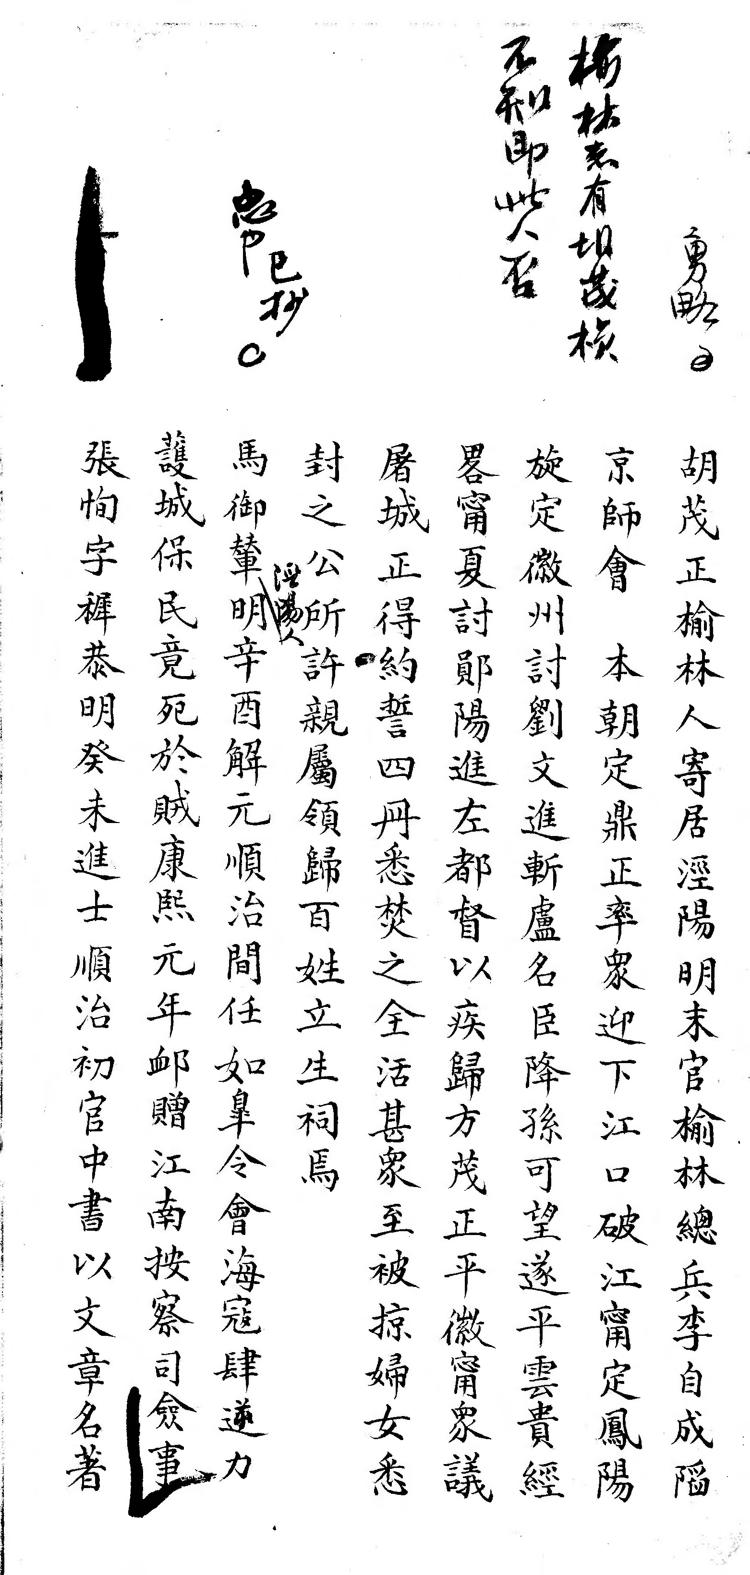 勇略
榆林志有胡茂楨
不知即此人否
忠節已抄
胡茂正榆林人寄居涇陽明末官榆林總兵李自成陷
京師會　本朝定鼎正率衆迎下江口破江甯定鳳陽
旋定徽州討劉文進斬盧名臣降孫可望遂平雲貴經
畧甯夏討鄖陽進左都督以疾歸方茂正平徽甯衆議
屠城正得約誓四冊悉焚之全活甚衆至被掠婦女悉
封之公所許親屬領歸百姓立生祠焉
涇陽人
馬御輦明辛酉解元順治間任如臯令會海寇肆逆力
護城保民竟死於賊康熙元年卹贈江南按察司僉事
張恂字穉恭明癸未進士順治初官中書以文章名著